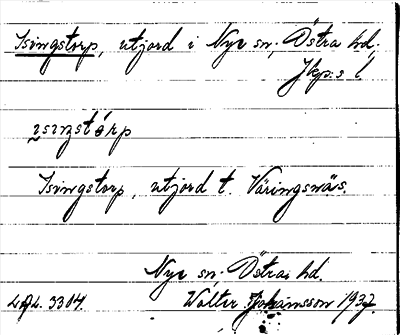 Isingstorp, utjord i Nye sn, Östra hd,
Jkp:s l
ısıŋstórp
Isingstorp, utjord t. Väringsnäs.
Nye sn, Östra hd.
LAL. 3304. Walter Johansson 1937.